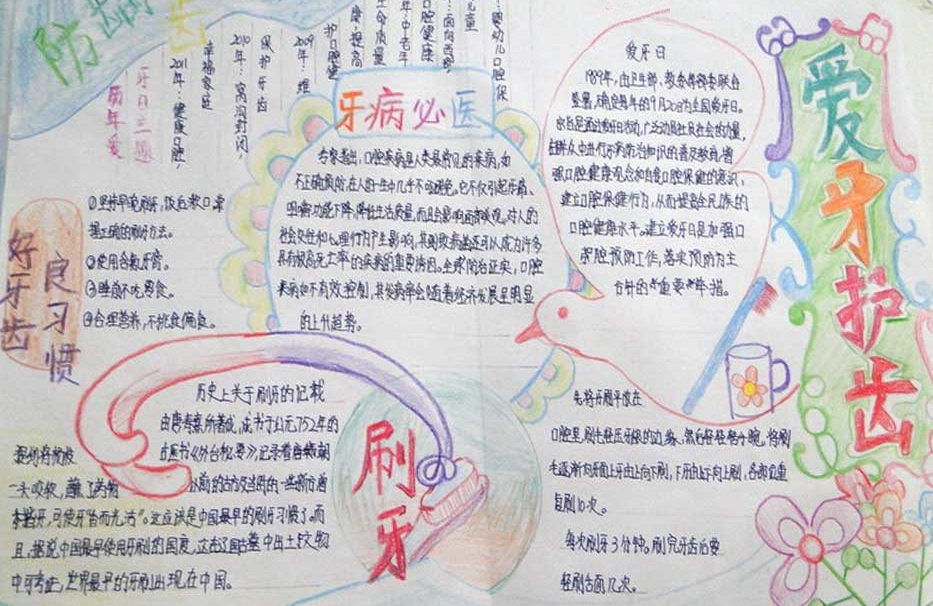 防
齿
爱牙护齿
牙日主题
历年爱
2011年：健康口腔，
幸福家庭
2010年：窝沟封闭，
保护牙齿
2009年：维
护口腔健
康提高
生命质量
年中老年
口腔健康
：面向西部
儿童
：婴幼儿口腔保
牙病必医
专家指出，口腔疾病是人类最常见的疾病，如
不正确预防，在人的一生中几乎不可避免。它不仅引起疼痛、
咀嚼功能下降，降低生活质量，而且会影响面容美观。对人的
社会交往和心理行为产生影响，其列致病菌还可以成为许多
具有极高死亡率的疾病的重要诱因。全球防治证实，口腔
疾病如不有效控制，其发病率会随着经济发展呈明显
的上升趋势。
爱牙日
1989年，由卫生部、教委等部委联合
签署，确定每年的9月20日为全国爱牙日。
宗旨是通过爱牙日活动，广泛动员社会的力量，
在群众中进行牙病防治知识的普及教育，增
强口腔健康观念和自我口腔保健的意识，
建立口腔保健行为，从而提高全民族的
口腔健康水平。建立爱牙日是加强口
腔预防工作，落实预防为主
方针的重要举措。
好牙齿
良习惯
①坚持早晚刷牙，饭后漱口，掌
握正确的刷牙方法。
②使用含氟牙膏。
③睡前不吃零食。
④合理营养，不挑食偏食。
历史上关于刷牙的记载
由唐 所著成，成书于公元752年的
中医书《外台秘要》，记录着
以前的古方及当时的一些新方
一头咬软，蘸了药物
揩牙，可使牙“香而光洁”。这应该是中国最早的刷牙习惯了。而
且，据说中国最早使用牙刷的国度，这在了 古墓中出土文物
中可考证，世界最早的牙刷出现在中国。
刷牙
先将牙刷平放在
口腔里，刷毛轻压牙根的边缘，然后轻轻转小腕，将刷
毛逐渐向牙面上牙由上向下刷，下牙由下向上刷，各部位重
复刷10次。
每次刷牙3分钟。刷完牙齿后要
轻刷舌面几次。